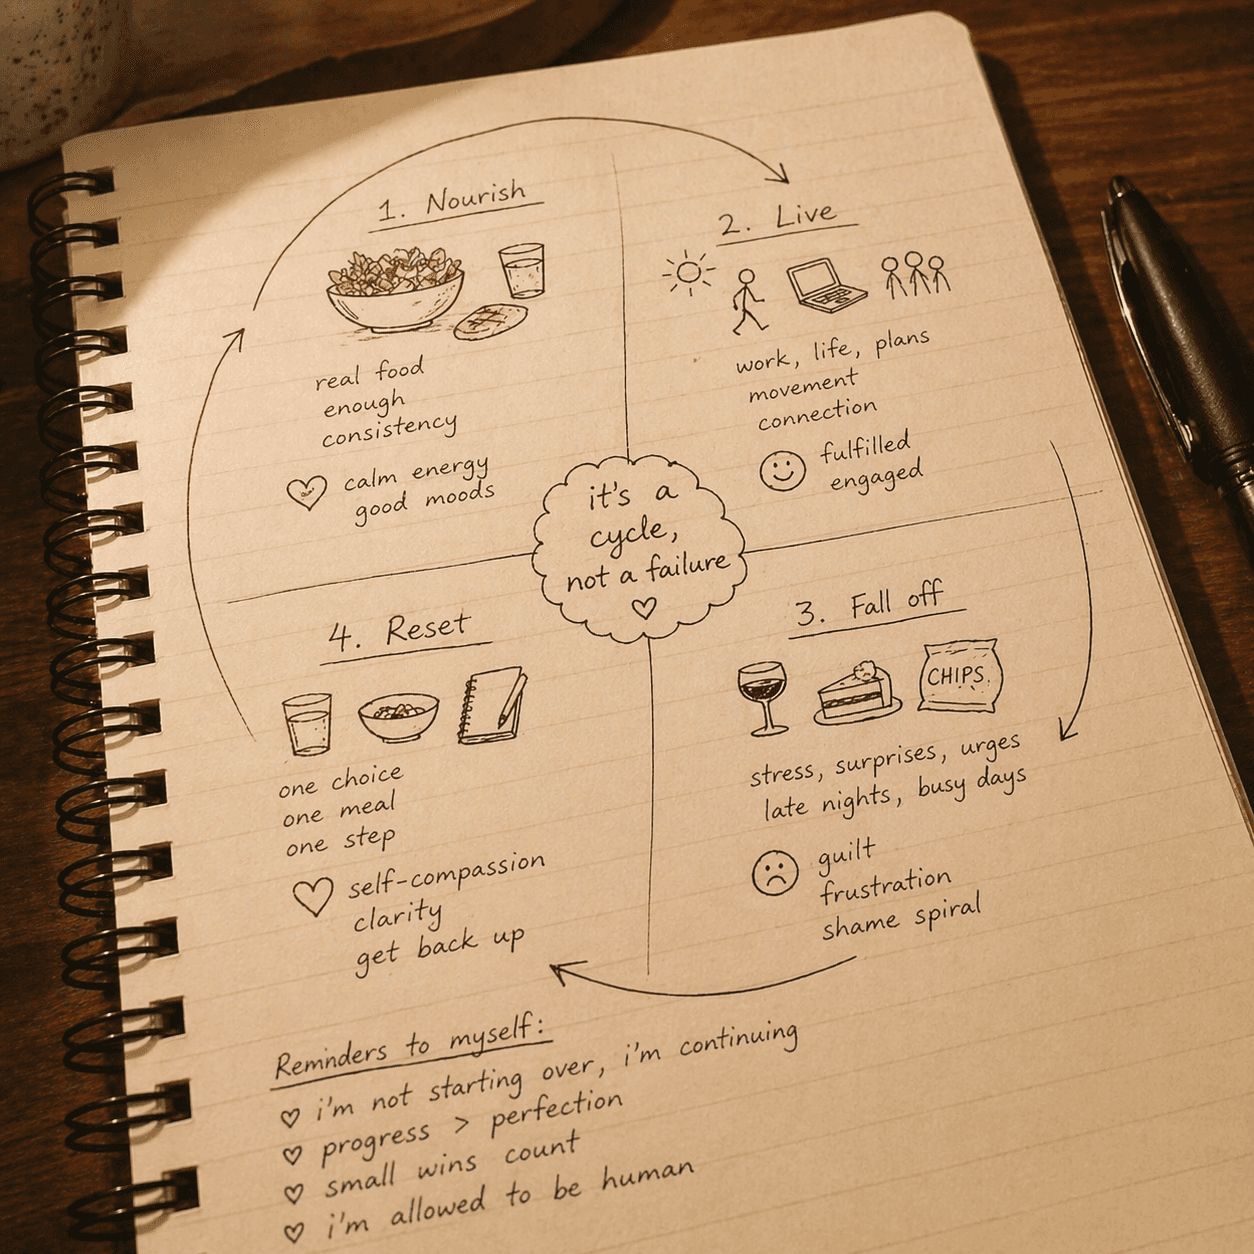 1. Nourish
real food
enough
consistency
calm energy
good moods
2. Live
work, life, plans
movement
connection
fulfilled
engaged
it's a
cycle,
not a failure
3. Fall off
CHIPS.
stress, surprises, urges
late nights, busy days
guilt
frustration
shame spiral
4. Reset
one choice
one meal
one step
self-compassion
clarity
get back up
Reminders to myself:
i'm not starting over, i'm continuing
progress > perfection
small wins count
i'm allowed to be human